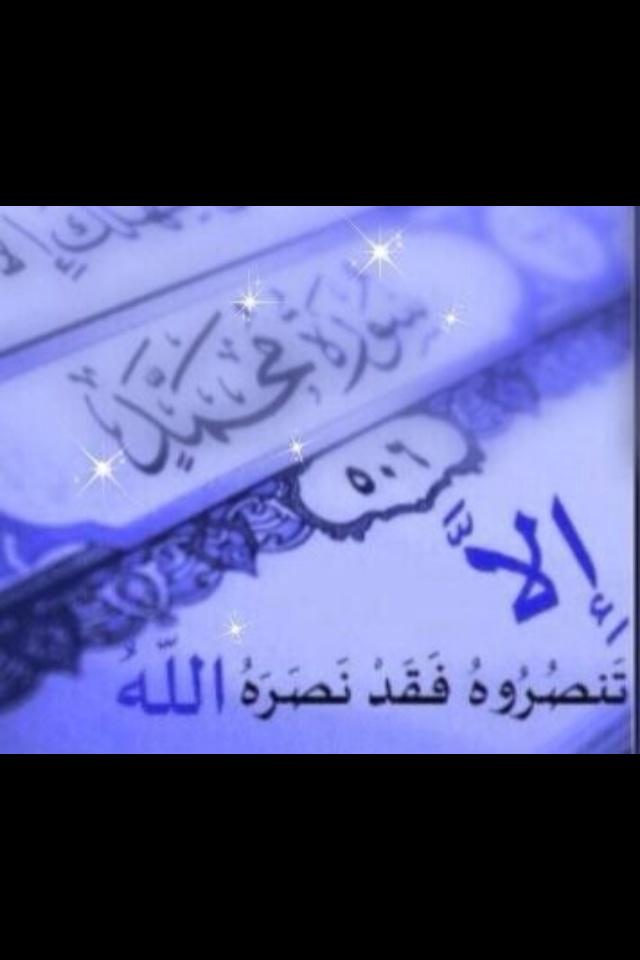 سورة محمد
إلاَّ
تَنصُرُوهُ فَقَدْ نَصَرَهُ اللَّهُ